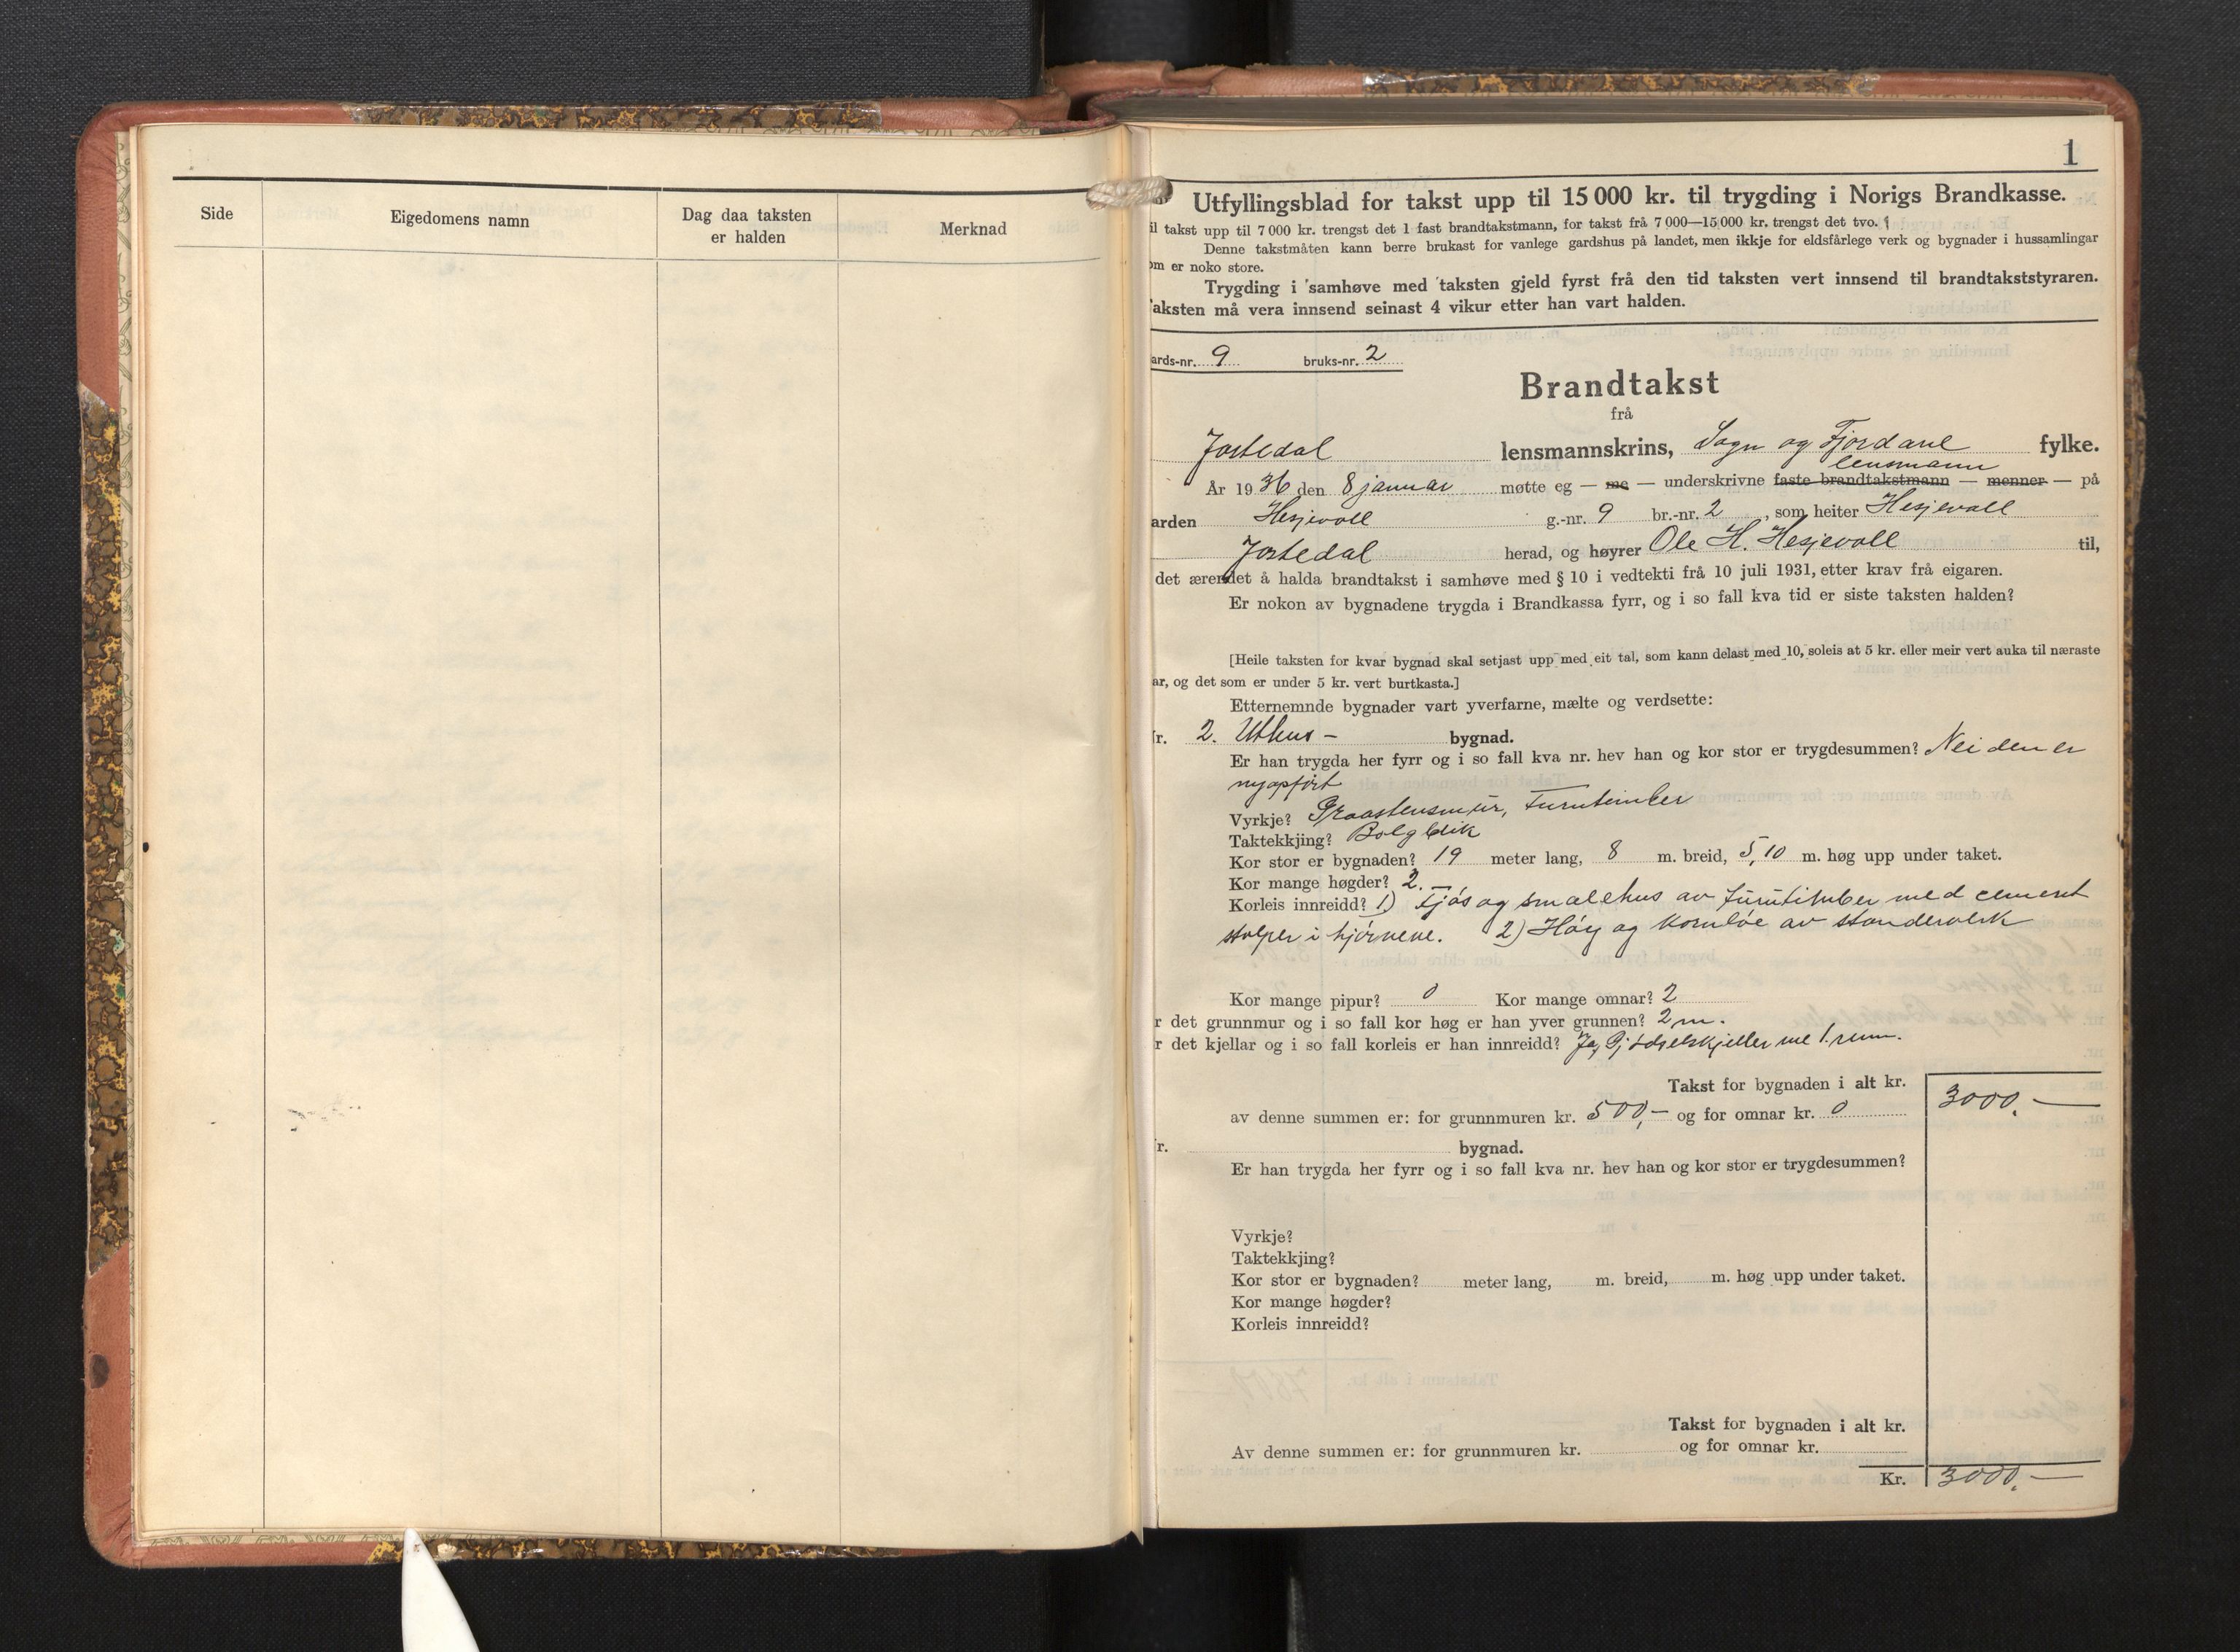 Side
Eigedomens namn
Dag daa taksten
er halden
Merknad
1
Utfyllingsblad for takst upp til 15 000 kr. til trygding i Norigs Brandkasse.
il takst upp til 7 000 kr. trengst det 1 fast brandtakstmann, for takst frå 7 000—15 000 kr. trengst det tvo.
Denne takstmåten kann berre brukast for vanlege gardshus på landet, men ikkje for eldsfårlege verk og bygnader i hussamlingar
om er noko store.
Trygding i samhøve med taksten gjeld fyrst frå den tid taksten vert innsend til brandtakststyraren.
aksten må vera innsend seinast 4 vikur etter han vart halden.
ards-nr. 9 bruks-nr. 2
Brandtakst
frå
Jostedal lensmannskrins, Sogn og Fjordane fylke.
lensmann
År 1936 den 8 januar møtte eg — me — underskrivne faste brandtakstmann — menner — på
arden Hesjevoll g.-nr. 9 br.-nr. 2, som heiter Hesjevoll
Jostedal herad, og høyrer Ole H. Hesjevoll til,
det ærendet å halda brandtakst i samhøve med § 10 i vedtekti frå 10 juli 1931, etter krav frå eigaren.
Er nokon av bygnadene trygda i Brandkassa fyrr, og i so fall kva tid er siste taksten halden?
[Heile taksten for kvar bygnad skal setjast upp med eit tal, som kann delast med 10, soleis at 5 kr. eller meir vert auka til næraste
ar, og det som er under 5 kr. vert burtkasta.]
Etternemnde bygnader vart yverfarne, mælte og verdsette:
r. 2. Uthus - bygnad.
Er han trygda her fyrr og i so fall kva nr. hev han og kor stor er trygdesummen? Nei den er
nyopført
Vyrkje? Graastensmur, Furutimber
Taktekkjing? Bølgblik
Kor stor er bygnaden? 19 meter lang, 8 m. breid, 5,10 m. høg upp under taket.
Kor mange høgder? 2. —
Korleis innreidd? 1) Fjøs og smalehus av furutimber med cement
stolper i hjørnene. 2) Høy og Kornløe av standerverk
Kor mange pipur? 0 Kor mange omnar? 2
r det grunnmur og i so fall kor høg er han yver grunnen? 2 m.
r det kjellar og i so fall korleis er han innreidd? Ja, Gjødselskjeller me 1. rum.
Takst for bygnaden i alt kr. 3000.—
av denne summen er: for grunnmuren kr. 500,- og for omnar kr. 0
r. bygnad.
Er han trygda her fyrr og i so fall kva nr. hev han og kor stor er trygdesummen?
Vyrkje?
Taktekkjing?
Kor stor er bygnaden? meter lang, m. breid, m. høg upp under taket.
Kor mange høgder?
Korleis innreidd?
Takst for bygnaden i alt kr.
Av denne summen er: for grunnmuren kr. og for omnar kr.
Kr. 3000.—